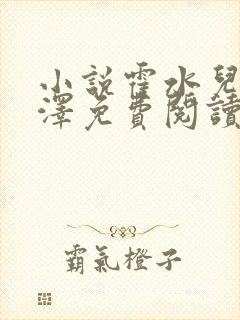 小說霍水兒
澤免費閱讀
霸氣橙子